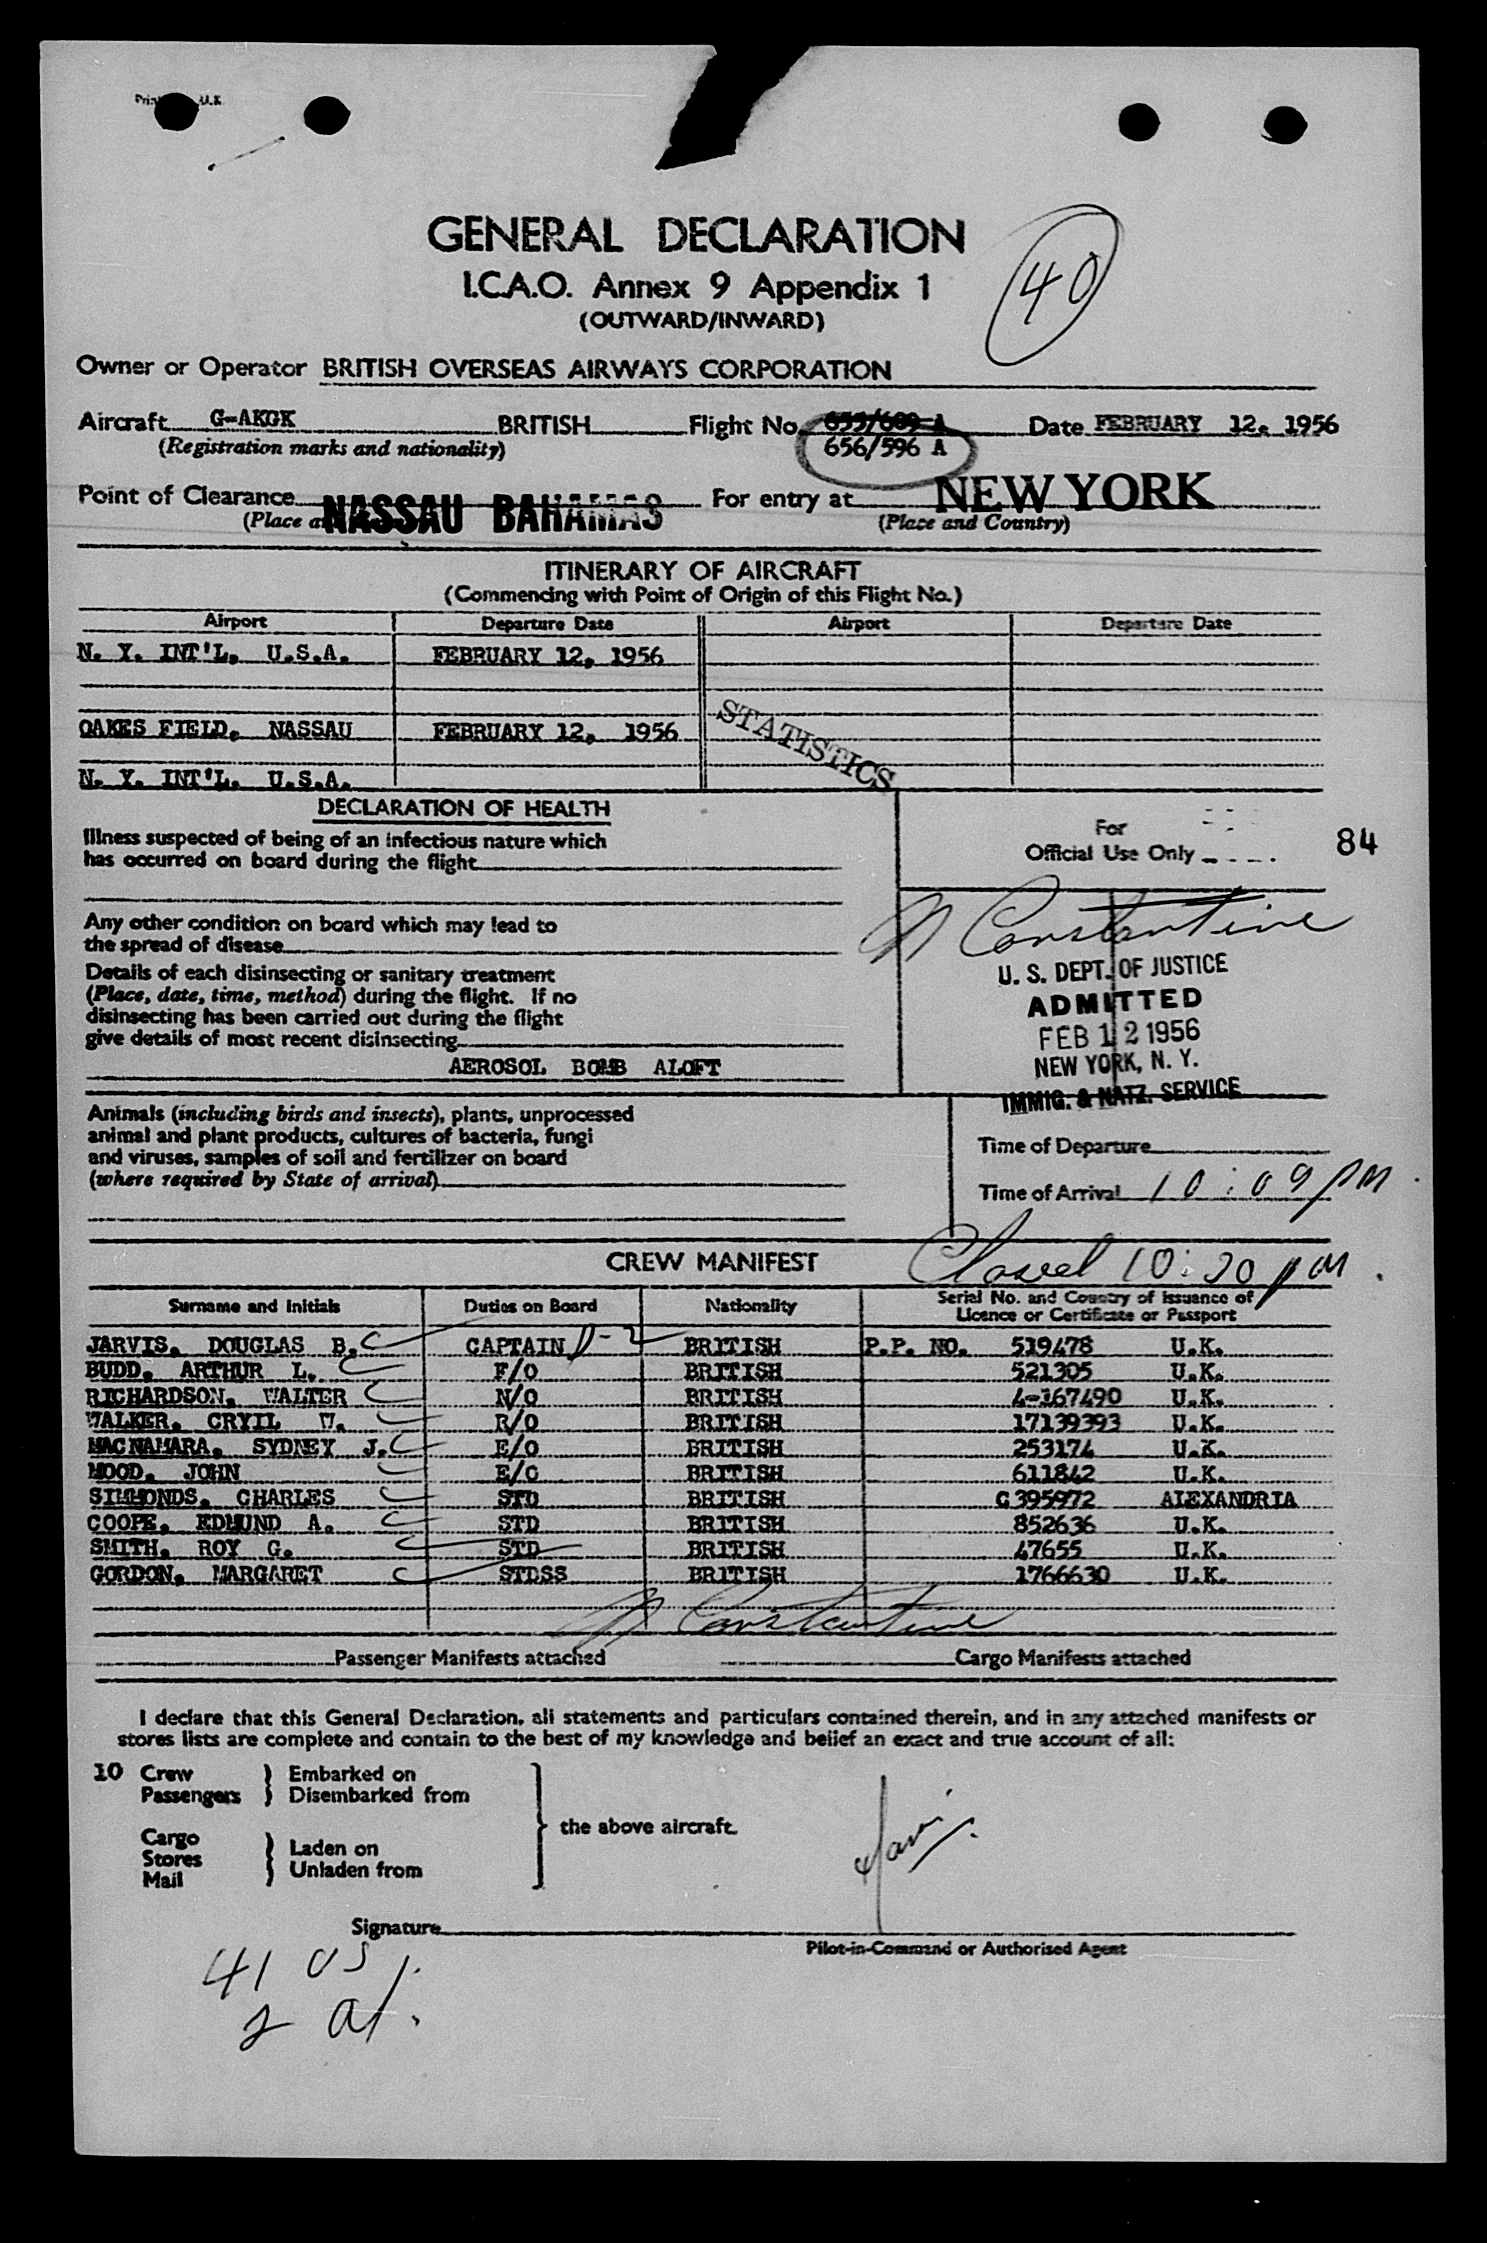 U.K.
GENERAL DECLARATION
I.C.A.O. Annex 9 Appendix 1
(OUTWARD/INWARD)
40
Owner or Operator BRITISH OVERSEAS AIRWAYS CORPORATION
Aircraft G-AKGK BRITISH Flight No. Date FEBRUARY 12, 1956
(Registration marks and nationality) 656/596 A
Point of Clearance NASSAU BAHAMAS For entry at NEW YORK
(Place (Place and Country)
ITINERARY OF AIRCRAFT
(Commencing with Point of Origin of this Flight No.)
Airport Departure Date Airport Departure Date
N. Y. INT'L, U.S.A. FEBRUARY 12, 1956
OAKES FIELD, NASSAU FEBRUARY 12, 1956
STATISTICS
N. Y. INT'L. U.S.A.
DECLARATION OF HEALTH
Illness suspected of being of an infectious nature which
has occurred on board during the flight
For
Official Use Only
84
Any other condition on board which may lead to
the spread of disease
Details of each disinsecting or sanitary treatment
(Place, date, time, method) during the flight. If no
disinsecting has been carried out during the flight
give details of most recent disinsecting
AEROSOL BOMB ALOFT
N Constantine
U. S. DEPT. OF JUSTICE
ADMITTED
FEB 12 1956
NEW YORK, N. Y.
IMMIG. & NATZ. SERVICE
Animals (including birds and insects), plants, unprocessed
animal and plant products, cultures of bacteria, fungi
and viruses, samples of soil and fertilizer on board
(where required by State of arrival)
Time of Departure
Time of Arrival 10:09 PM
CREW MANIFEST Closed 10:20 PM.
Surname and Initials Duties on Board Nationality Serial No. and Country of Issuance of
Licence or Certificate or Passport
JARVIS, DOUGLAS B. C CAPTAIN D-2 BRITISH P.P. NO. 519478 U.K.
BUDD, ARTHUR L. C F/O BRITISH 521305 U.K.
RICHARDSON, WALTER C N/O BRITISH 4-167490 U.K.
WALKER, CRYIL W. C R/O BRITISH 17139393 U.K.
MACNAMARA, SYDNEY J. C E/O BRITISH 253174 U.K.
MOOD, JOHN C E/O BRITISH 611842 U.K.
SIMMONDS, CHARLES C STD BRITISH C 395972 ALEXANDRIA
COOPE, EDMUND A. C STD BRITISH 852636 U.K.
SMITH, ROY G. C STD BRITISH 47655 U.K.
GORDON, MARGARET C STDSS BRITISH 1766630 U.K.
N Constantine
Passenger Manifests attached Cargo Manifests attached
I declare that this General Declaration, all statements and particulars contained therein, and in any attached manifests or
stores lists are complete and contain to the best of my knowledge and belief an exact and true account of all:
10 Crew } Embarked on
Passengers } Disembarked from
the above aircraft.
Cargo
Stores } Laden on
Mail } Unladen from
Jarvis
Signature
Pilot-in-Command or Authorised Agent
41 US
2 al.